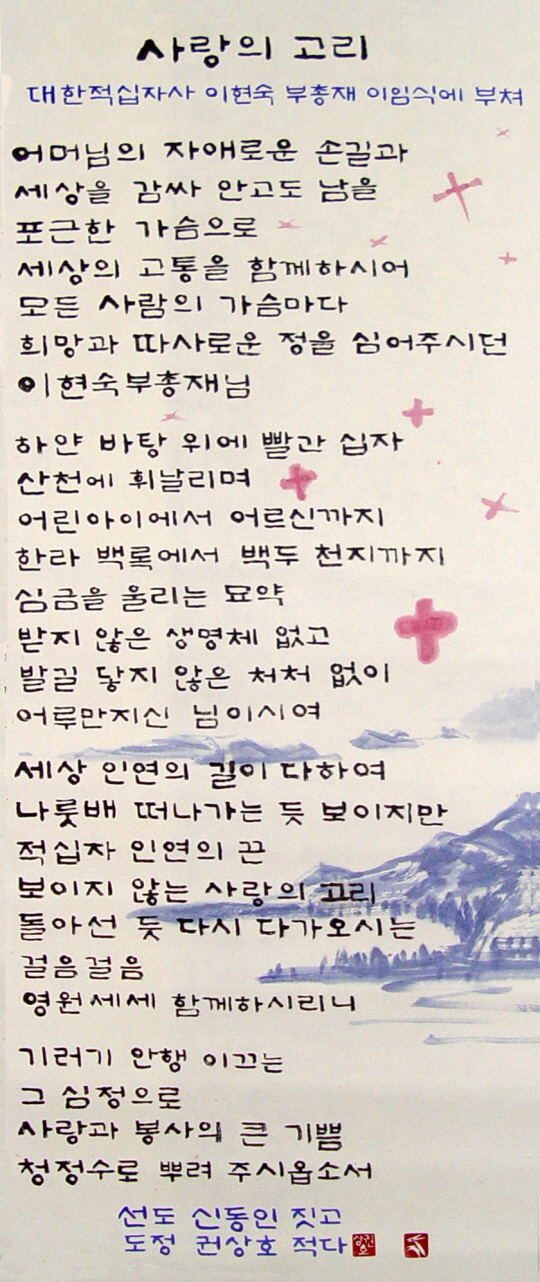 사랑의 고리
대한적십자사 이현숙 부총재 이임식에 부쳐
어머님의 자애로운 손길과
세상을 감싸 안고도 남을
포근한 가슴으로
세상의 고통을 함께하시어
모든 사람의 가슴마다
희망과 따사로운 정을 심어주시던
이현숙부총재님
하얀 바탕 위에 빨간 십자
산천에 휘날리며
어린아이에서 어르신까지
한라 백록에서 백두 천지까지
심금을 울리는 묘약
받지 않은 생명체 없고
발길 닿지 않은 처처 없이
어루만지신 님이시여
세상 인연의 길이 다하여
나룻배 떠나가는 듯 보이지만
적십자 인연의 끈
보이지 않는 사랑의 고리
돌아선 듯 다시 다가오시는
걸음걸음
영원세세 함께하시리니
기러기 안행 이끄는
그 심정으로
사랑과 봉사의 큰 기쁨
청정수로 뿌려 주시옵소서
선도 신동인 짓고
도정 권상호 적다